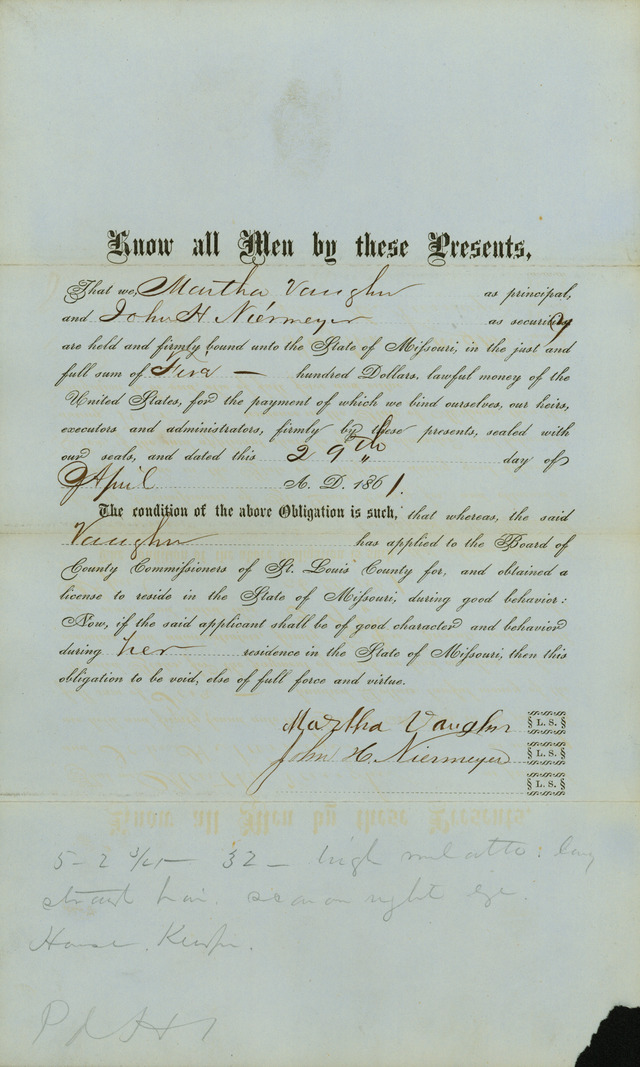 Know all Men by these Presents,
That we, Martha Vaughn as principal,
and John H Niermeyer as security
are held and firmly bound unto the State of Missouri, in the just and
full sum of Five — hundred Dollars, lawful money of the
United States, for the payment of which we bind ourselves, our heirs,
executors and administrators, firmly by these presents, sealed with
our seals, and dated this 29th day of
April A. D. 1861.
The condition of the above Obligation is such, that whereas, the said
Vaughn has applied to the Board of
County Commissioners of St. Louis County for, and obtained a
license to reside in the State of Missouri, during good behavior:
Now, if the said applicant shall be of good character and behavior
during her residence in the State of Missouri, then this
obligation to be void, else of full force and virtue.
Martha Vaughn L. S.
John H. Niermeyer L. S.
L. S.
5-2 32 - high mulatto. long
hair. scar on right eye.
House. Keeper.